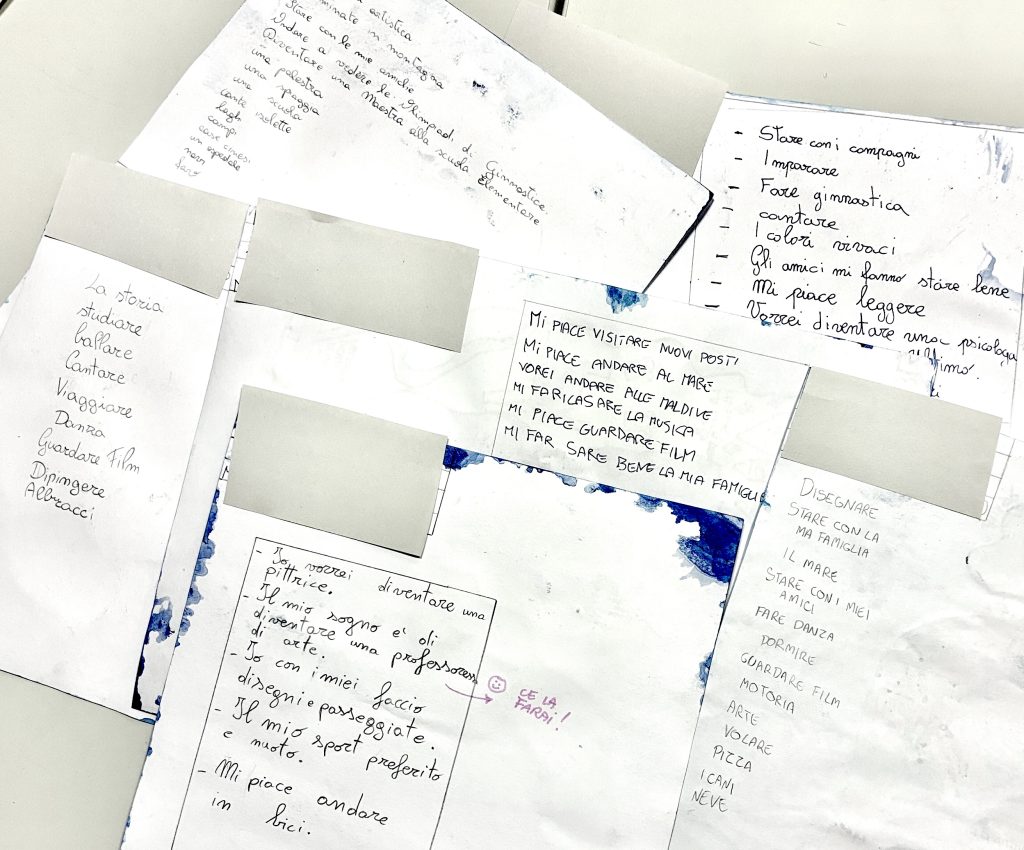 artistica
in montagna
Stare con le mie amiche
Andare a vedere le Olimpiadi di Ginnastica.
Diventare una Maestra alla scuola Elementare
una palestra
una spiaggia
una scuola
tante isolette
laghi
campi
case cinesi
un ospedale
navi
faro
- Stare con i compagni
- Imparare
- Fare ginnastica
- cantare
- I colori vivaci
- Gli amici mi fanno stare bene
- Mi piace leggere
- Vorrei diventare una psicologa
La storia
studiare
ballare
Cantare
Viaggiare
Danza
Guardare Film
Dipingere
Abbracci
MI PIACE VISITARE NUOVI POSTI
MI PIACE ANDARE AL MARE
VOREI ANDARE ALLE MALDIVE
MI FA RILASARE LA MUSICA
MI PIACE GUARDARE FILM
MI FAR SARE BENE LA MIA FAMIGLIE
- Io vorrei diventare una
pittrice.
- Il mio sogno e' di
diventare una professoressa
di arte.
- Io con i miei faccio
disegni e passeggiate.
- Il mio sport preferito
e nuoto.
- Mi piace andare
in bici.
CE LA
FARAI!
DISEGNARE
STARE CON LA
MA FAMIGLIA
IL MARE
STARE CON I MIEI
AMICI
FARE DANZA
DORMIRE
GUARDARE FILM
MOTORIA
ARTE
VOLARE
PIZZA
I CANI
NEVE